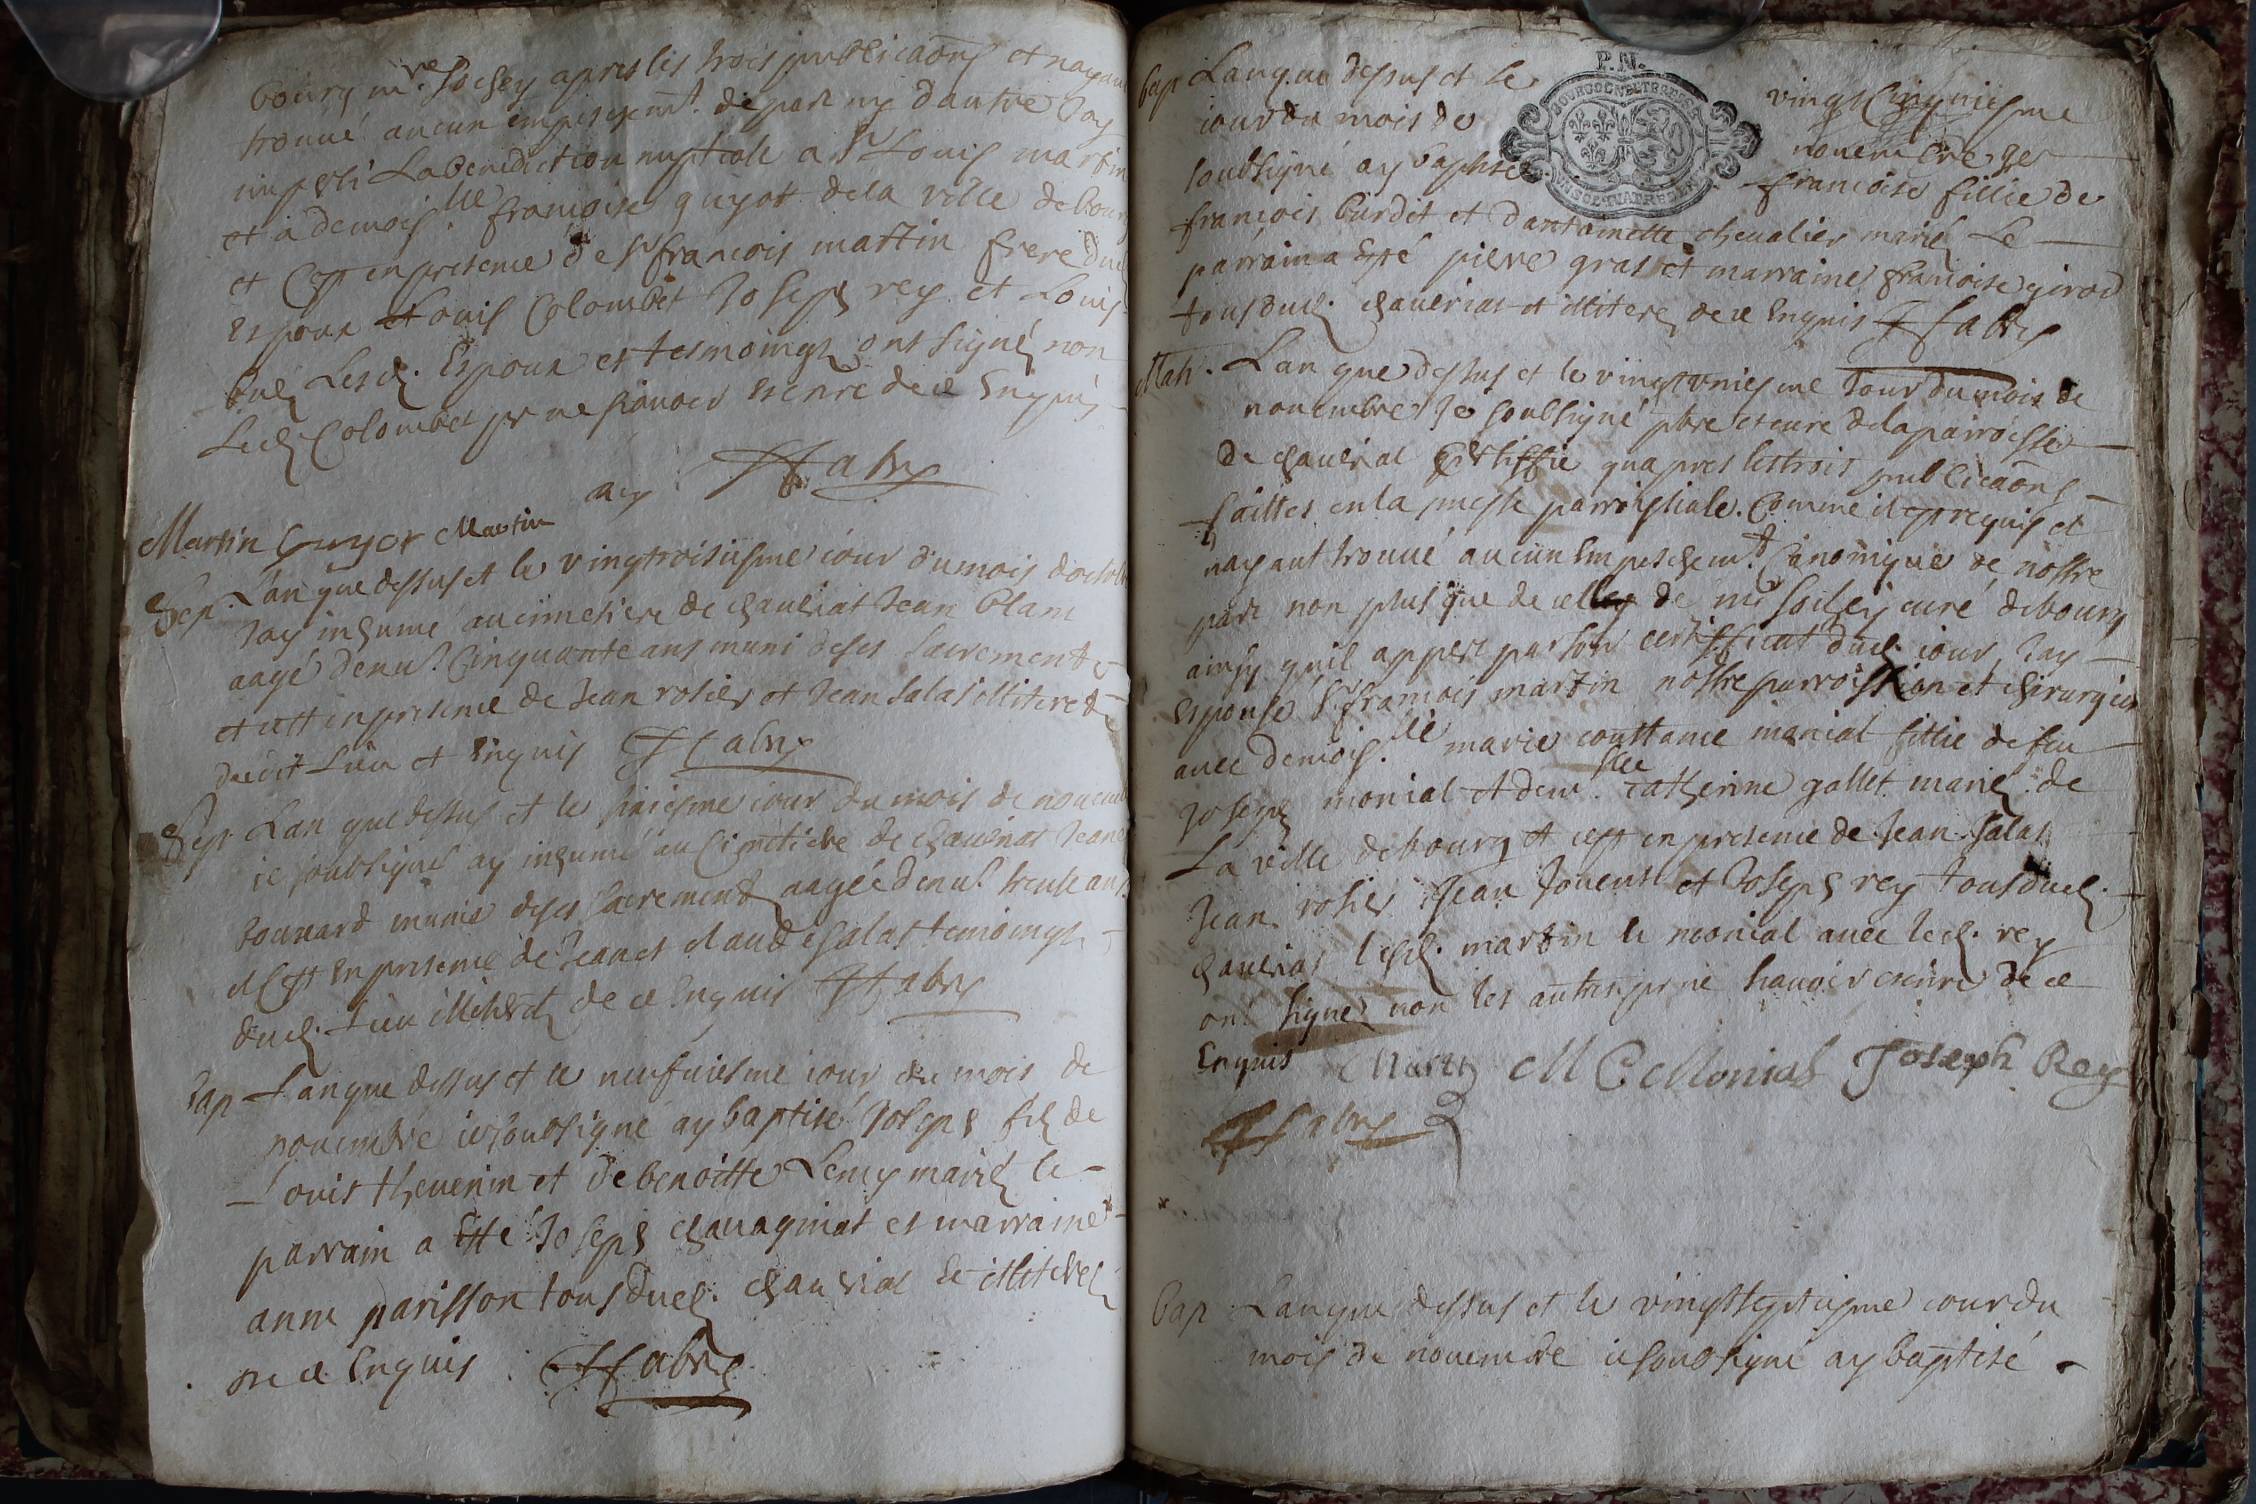 bourg mre Sochey apres les trois publicaõns et nayant
trouué aucun empeschemt. de part ny dautre Jay
imparti La benediction nuptiale a Sr Louis martin
et a demoislle. francoise guyot de la ville de bourg
et Cest en presence de Sr francois martin frere dud
espoux Louis Colombet Joseph rey et Louis
Lesd. Espoux et tesmoings ont signé non
Led Colombet pr ne scauoir escrire de ce Enquis
FFabry
Martin Guyot Martin
Sep. Lan que dessus et le vingtroisiesme iour du mois doctobre
Jay inhumé au cimetiere de chaueriat Jean blanc
aagé denu. Cinquante ans muni de ses Sacrements
et cest en presence de Jean rosier et Jean Salas illiterez
dudit Lieu et Enquis FFabry
Sep Lan que dessus et le sixiesme iour du mois de nouembre
ie soubsigné ay inhumé au Cimetiere de chaueriat Jeane
munie de ses Sacrements aagée denu. trente ans
et Cest En presence de Jean et claude Salas temoings
dud. Lieu illiterez de ce Enquis FFabry
bap Lan que dessus et le neufuiesme iour du mois de
nouembre ie soubsigné ay baptisé Joseph fils de
Louis theuenin et de benoitte Lemy mariez le
parrain a Esté Joseph chauagniat et marraine
anne parisson tous dud. chaueriat et illiterez
de ce Enquis FFabry
bap Lan que dessus et le vingt cinquiesme
P.N.
BOURGOGNE ET BRESSE
iour du mois de nouembre Je
soubsigné ay baptisé francoise fillie de
françois burdet et dantoinette cheualier mariez Le
parrain a Esté pierre gras et marraine francoise girod
tous dud. chaueriat et illiterez de ce Enquis FFabry
Mar. Lan que dessus et le vingtuniesme Jour du mois de
nouembre Je soubsigné pbre et curé de la parroisse
de chaueriat Certiffie quapres les trois publicaõns
faittes en la messe parroissiale. Comme il est requis et
nayant trouué aucun Empeschemt. Canonique de nostre
part non plus que de celle de mre Sochey curé de bourg
ainsy quil appert par son certifficat dud. iour, Jay
espousé Sr francois martin nostre parroissien et chirurgien
auec demoislle. marie constance monial fillie de feu
Joseph monial et demlle. catherine gallet mariez de
La ville de bourg et cest en presence de Jean Salas
Jean rosier Jean Jouent et Joseph rey tous dud.
chaueriat lesd. martin le monial auec led. rey
ont signé non les autres pr ne scauoir escrire de ce
Enquis Martin M C Monial Joseph Rey
FFabry
bap Lan que dessus et le vingtseptiesme iour du
mois de nouembre ie soubsigné ay baptisé